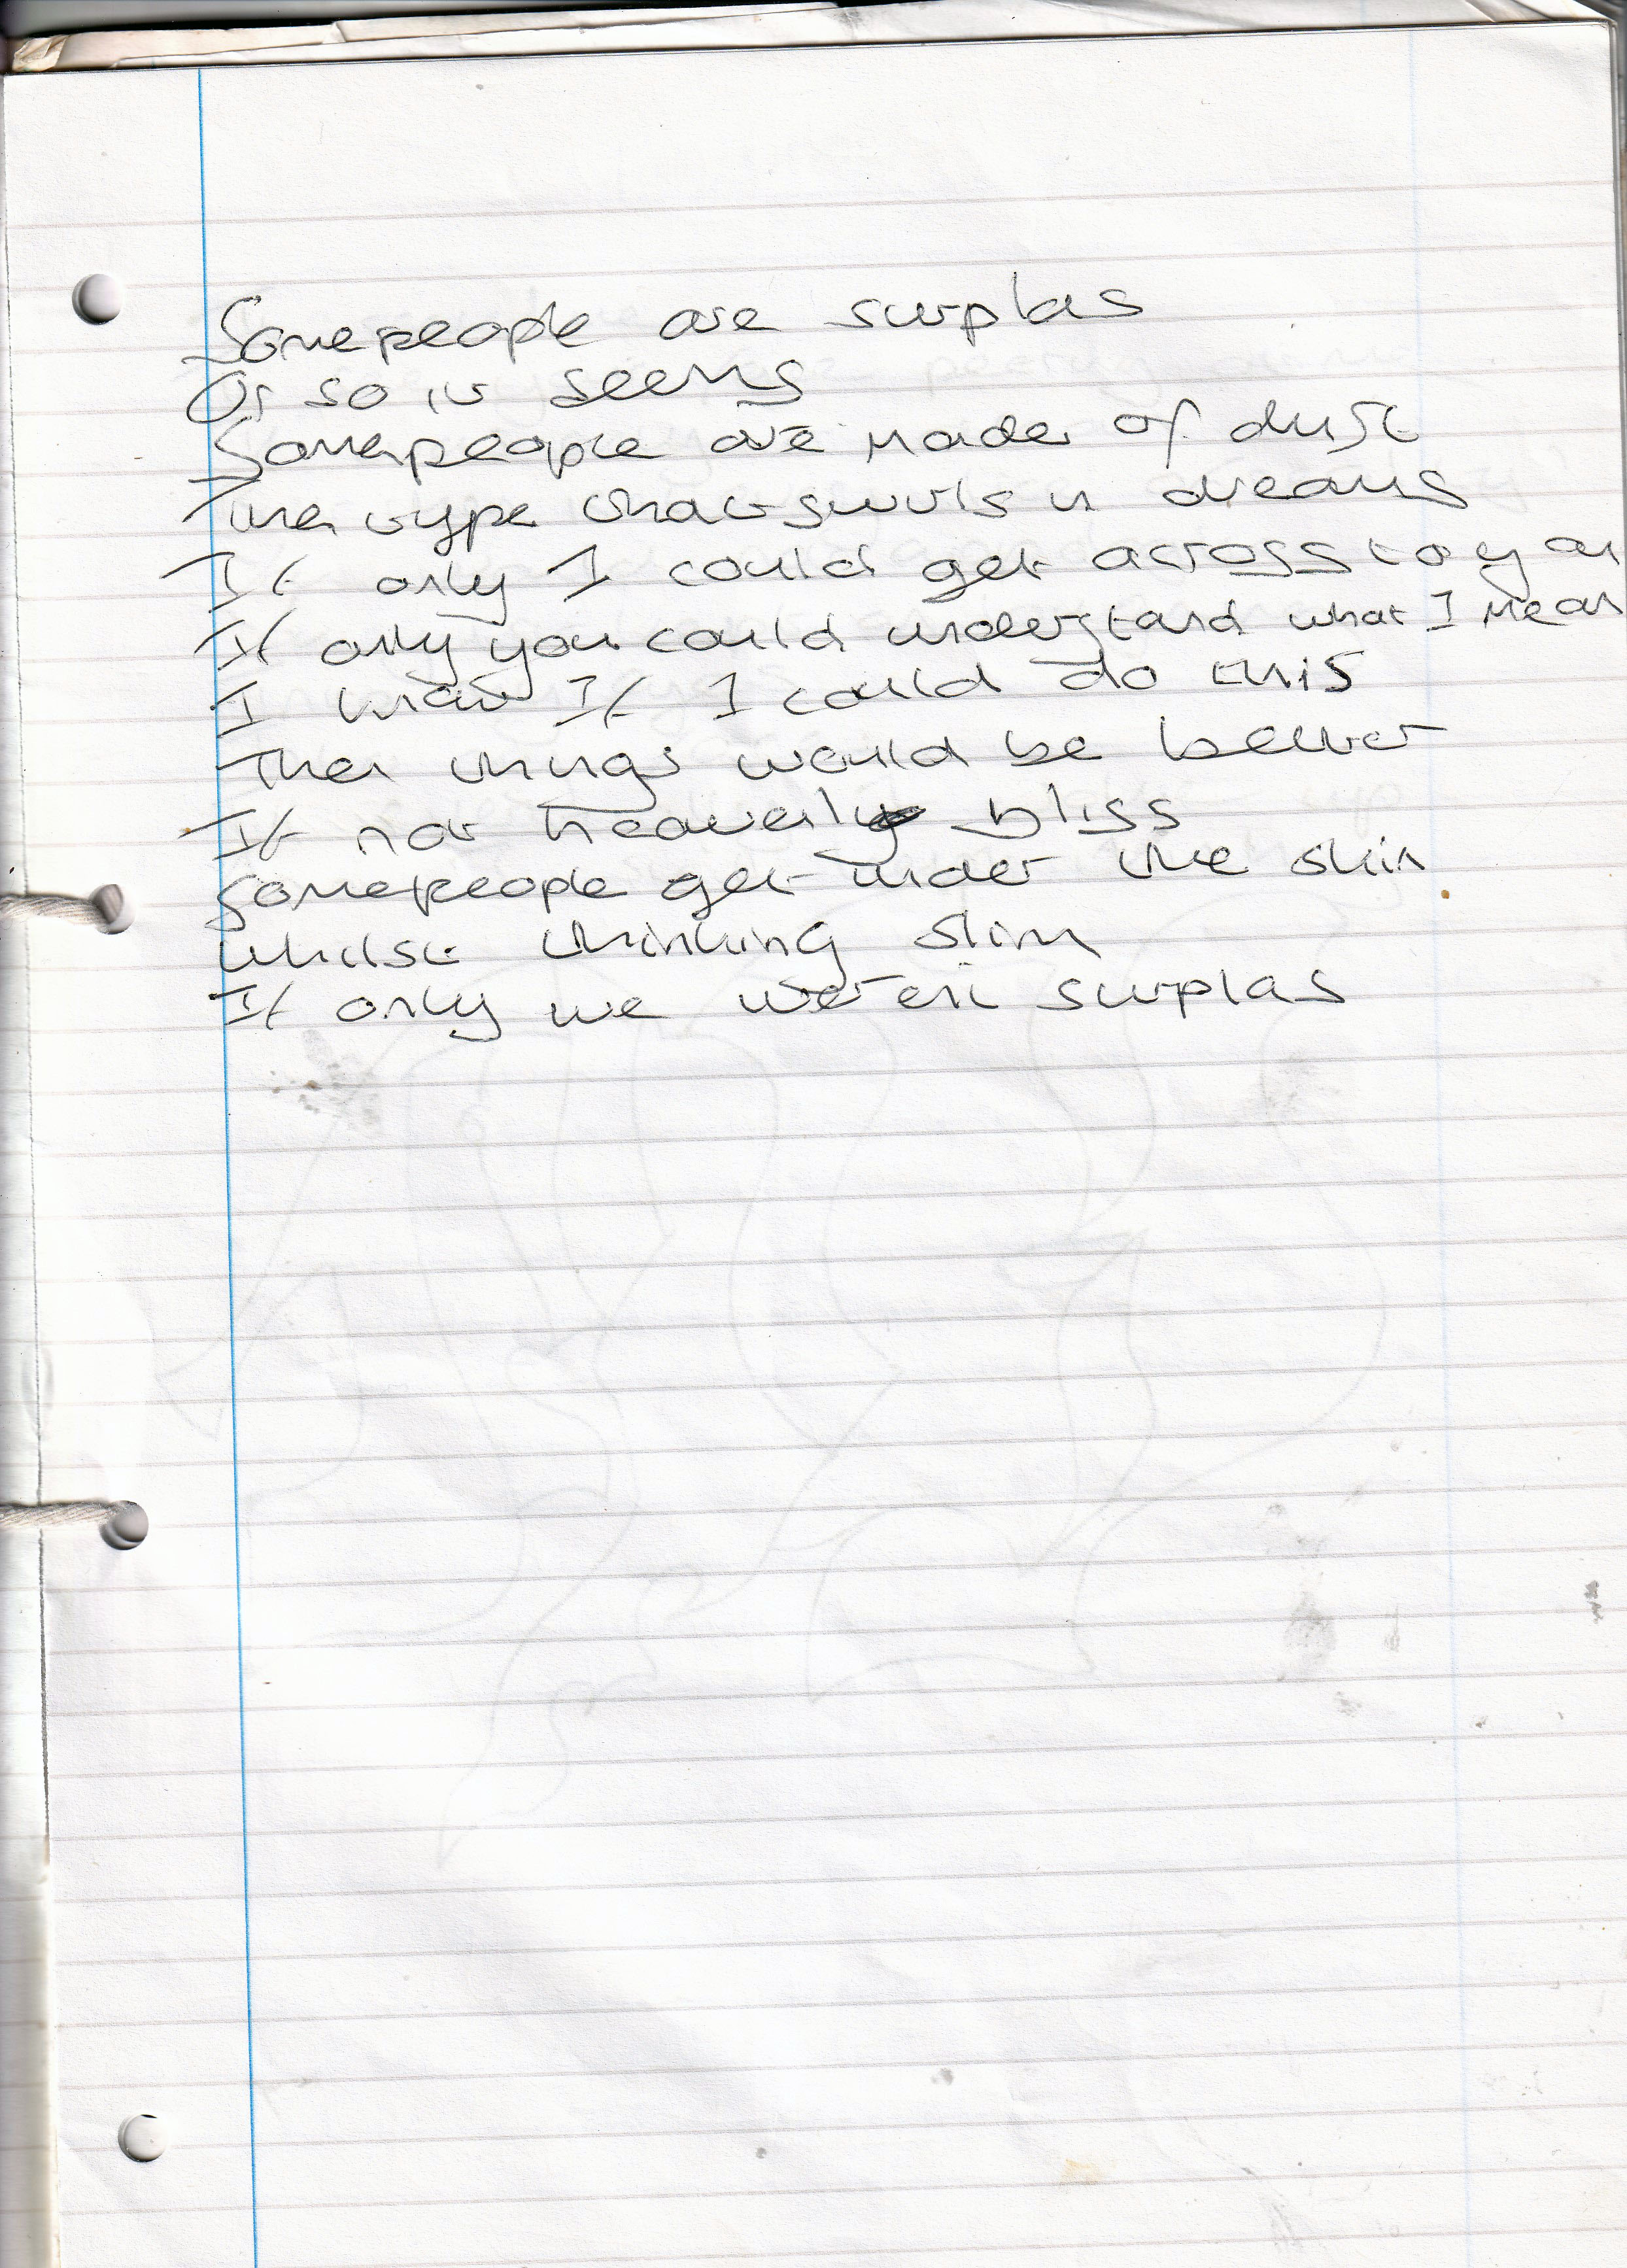 Some people are surplas
Or so it seems
Some people are made of dust
The type that swirls in dreams
If only I could get across to you
If only you could understand what I mean
I know If I could do this
Then things would be better
If not heavenly bliss
Some people get under the skin
Whilst thinking slim
If only we weren't surplas